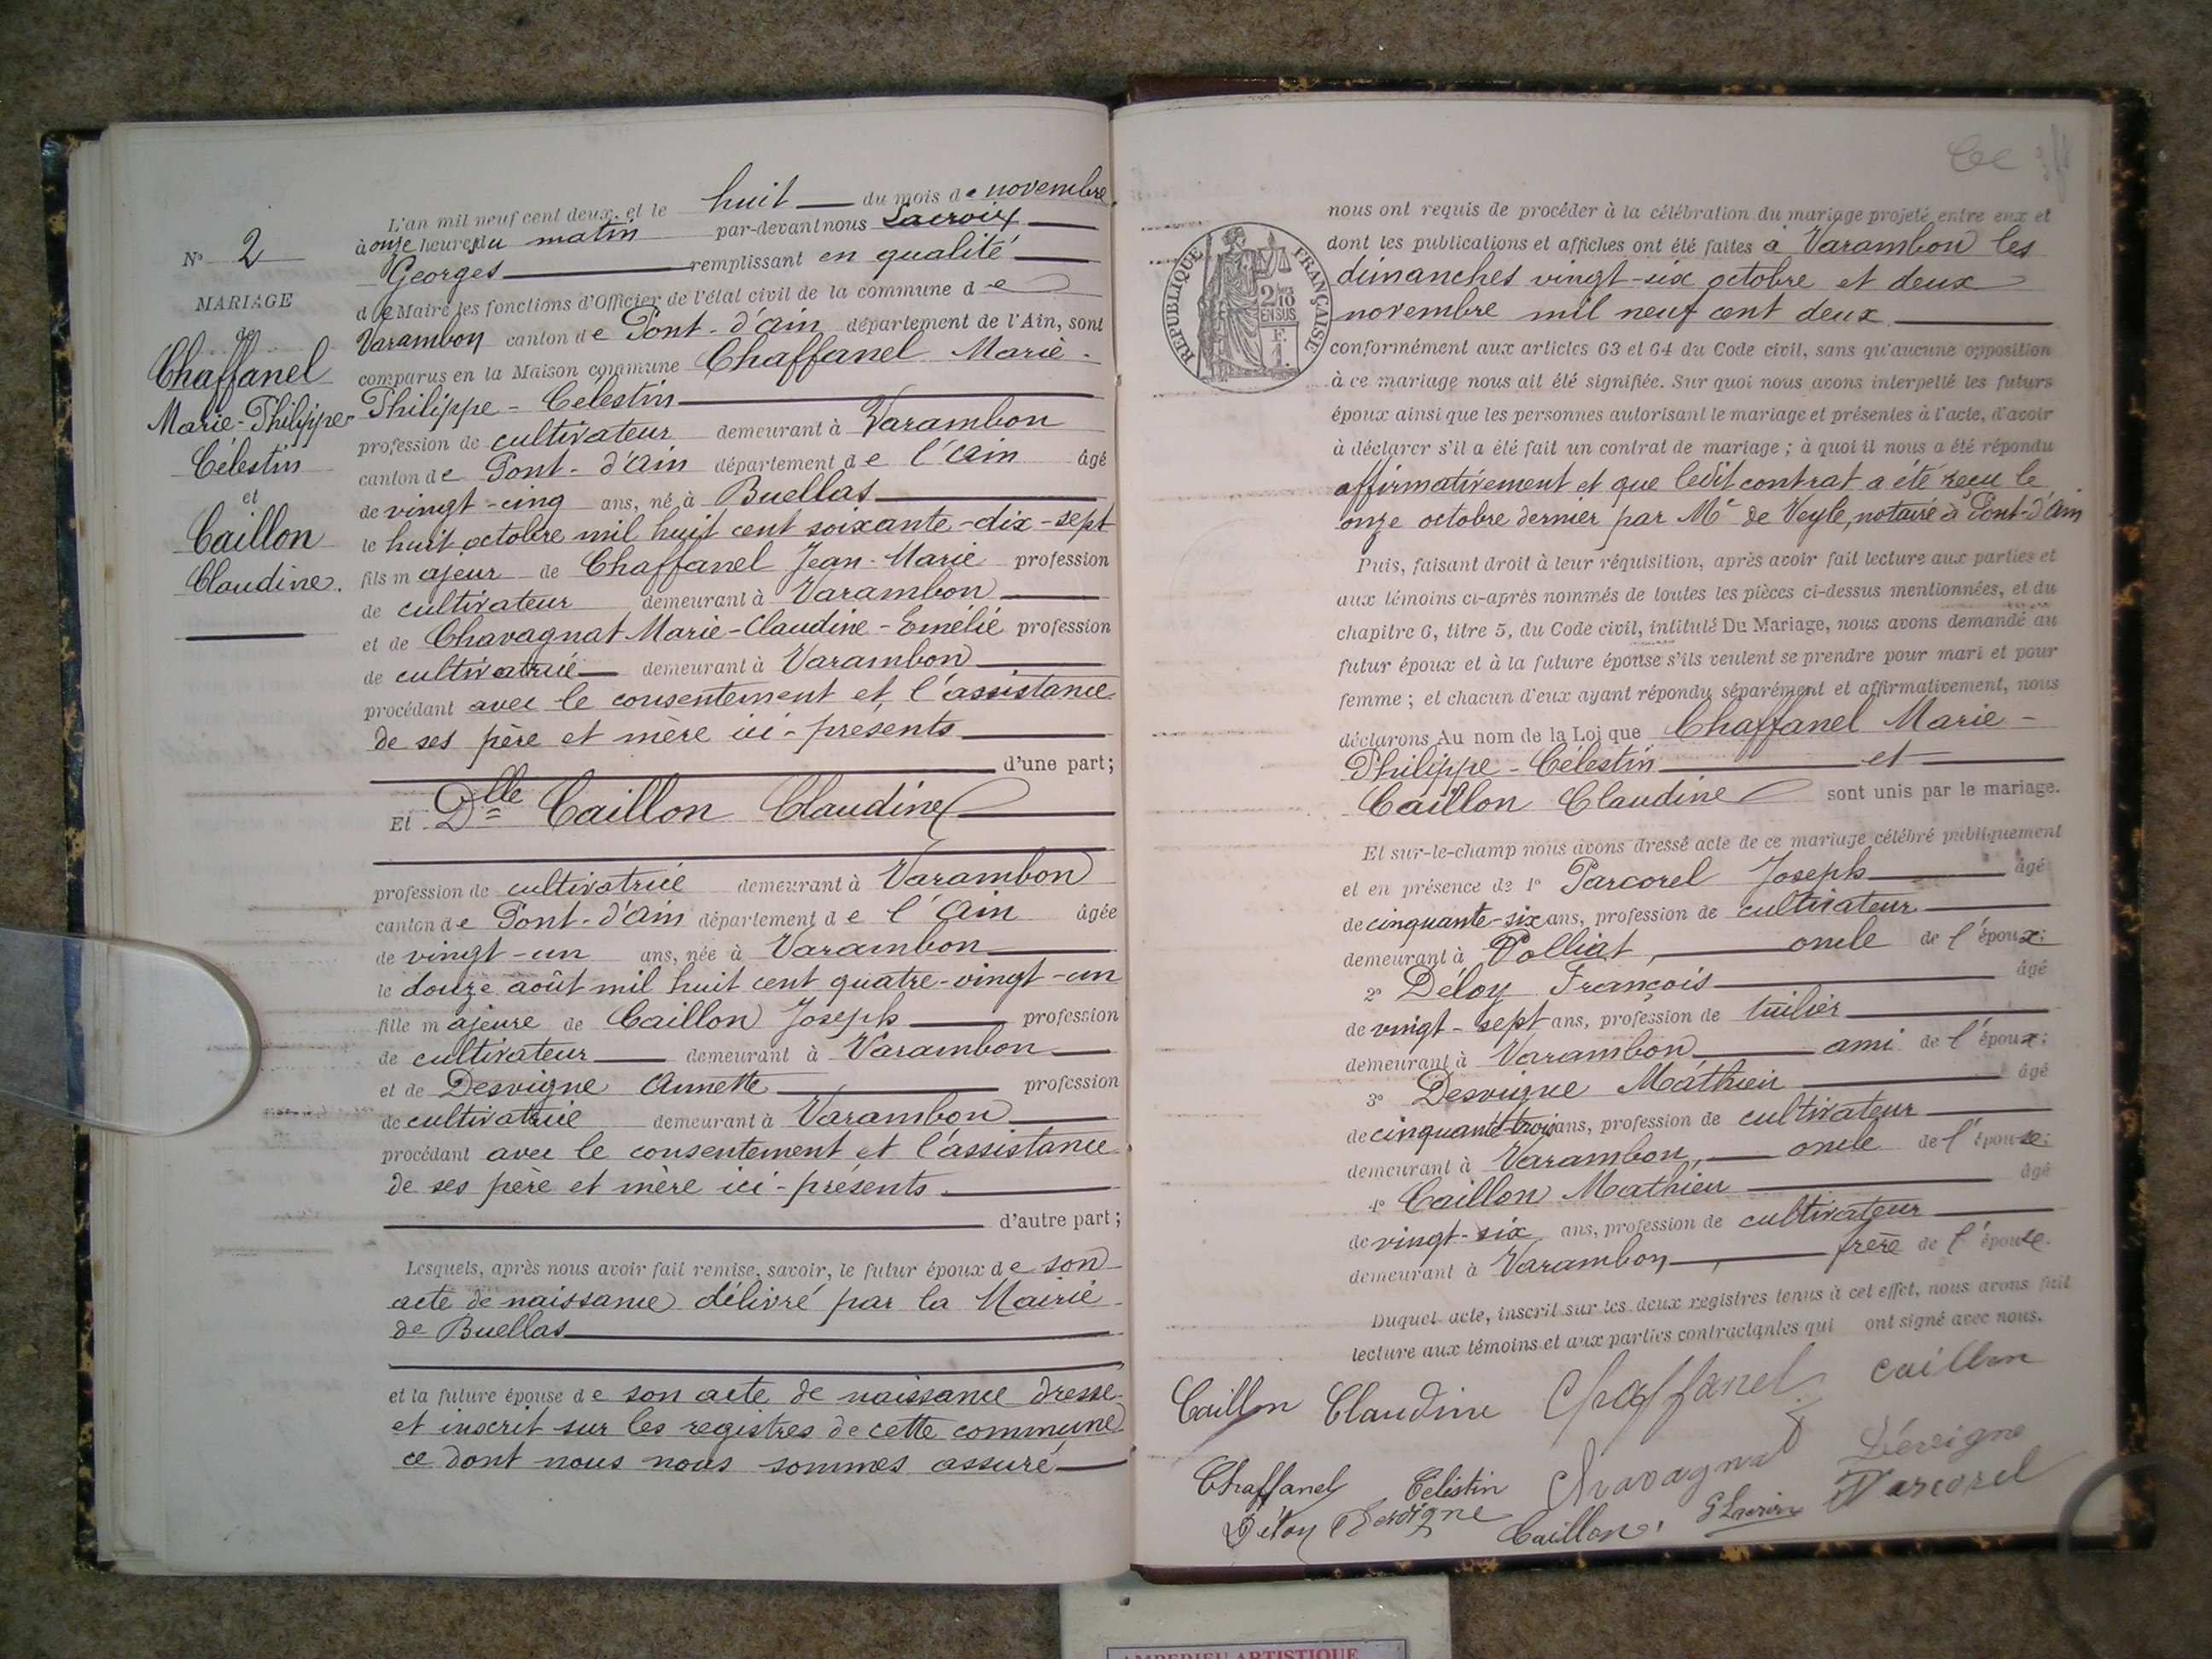 N° 2
MARIAGE
de
Chaffanel
Marie-Philippe-
Célestin
et
Caillon
Claudine.
L'an mil neuf cent deux, et le huit du mois de novembre
à onze heures du matin par-devant nous Lacroix
Georges remplissant en qualité
de Maire les fonctions d'Officier de l'état civil de la commune de
Varambon canton de Pont-d'Ain département de l'Ain, sont
comparus en la Maison commune Chaffanel Marie-
Philippe-Célestin
profession de cultivateur demeurant à Varambon
canton de Pont-d'Ain département de l'Ain âgé
de vingt-cinq ans, né à Buellas
le huit octobre mil huit cent soixante-dix-sept
fils majeur de Chaffanel Jean-Marie profession
de cultivateur demeurant à Varambon
et de Chavagnat Marie-Claudine-Emélie profession
de cultivatrice demeurant à Varambon
procédant avec le consentement et l'assistance
de ses père et mère ici-présents
d'une part;
Et Dlle Caillon Claudine
profession de cultivatrice demeurant à Varambon
canton de Pont-d'Ain département de l'Ain âgée
de vingt-un ans, née à Varambon
le douze août mil huit cent quatre-vingt-un
fille majeure de Caillon Joseph profession
de cultivateur demeurant à Varambon
et de Desvigne Annette profession
de cultivatrice demeurant à Varambon
procédant avec le consentement et l'assistance
de ses père et mère ici-présents.
d'autre part;
Lesquels, après nous avoir fait remise, savoir, le futur époux de son
acte de naissance délivré par la Mairie
de Buellas
et la future épouse de son acte de naissance dressé
et inscrit sur les registres de cette commune
ce dont nous nous sommes assuré
RÉPUBLIQUE FRANÇAISE
2/10
EN SUS
F.
1.
nous ont requis de procéder à la célébration du mariage projeté entre eux et
dont les publications et affiches ont été faites à Varambon les
dimanches vingt-six octobre et deux
novembre mil neuf cent deux
conformément aux articles 63 et 64 du Code civil, sans qu'aucune opposition
à ce mariage nous ait été signifiée. Sur quoi nous avons interpellé les futurs
époux ainsi que les personnes autorisant le mariage et présentes à l'acte, d'avoir
à déclarer s'il a été fait un contrat de mariage; à quoi il nous a été répondu
affirmativement et que ledit contrat a été reçu le
onze octobre dernier par Me de Veyle, notaire à Pont-d'Ain
Puis, faisant droit à leur réquisition, après avoir fait lecture aux parties et
aux témoins ci-après nommés de toutes les pièces ci-dessus mentionnées, et du
chapitre 6, titre 5, du Code civil, intitulé Du Mariage, nous avons demandé au
futur époux et à la future épouse s'ils veulent se prendre pour mari et pour
femme; et chacun d'eux ayant répondu séparément et affirmativement, nous
déclarons Au nom de la Loi que Chaffanel Marie-
Philippe-Célestin et
Caillon Claudine sont unis par le mariage.
Et sur-le-champ nous avons dressé acte de ce mariage célébré publiquement
et en présence de 1° Parcorel Joseph âgé
de cinquante-six ans, profession de cultivateur
demeurant à Polliat, oncle de l'époux;
2° Déloy François âgé
de vingt-sept ans, profession de tuilier
demeurant à Varambon ami de l'époux;
3° Desvigne Mathieu âgé
de cinquante-trois ans, profession de cultivateur
demeurant à Varambon, oncle de l'épouse;
4° Caillon Mathieu âgé
de vingt-six ans, profession de cultivateur
demeurant à Varambon, frère de l'épouse.
Duquel acte, inscrit sur les deux registres tenus à cet effet, nous avons fait
lecture aux témoins et aux parties contractantes qui ont signé avec nous.
Caillon Claudine Chaffanel Caillon
Chaffanel Célestin Chavagnat Dévigne
Déloy Desvigne Caillon G Lacroix Parcorel
AMBERIEU ARTISTIQUE